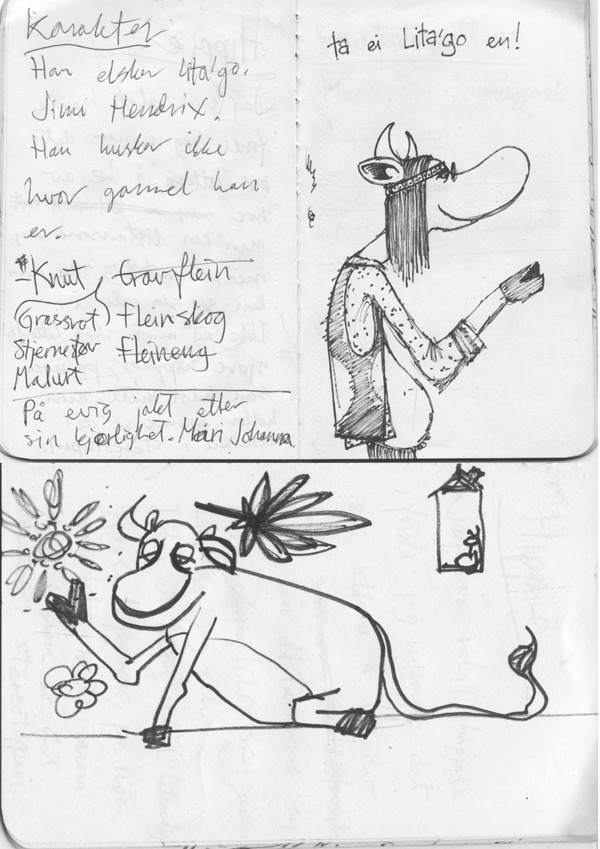 Karakter
Han elsker lita'go.
Jimi Hendrix.
Han husker ikke
hvor gammel han
er
Knut Gravflein
(Grassrot) Fleinskog
Fleineng
Malurt
På evig jakt etter
sin kjærlighet. Mari Johanna.
ta ei Lita'go en!